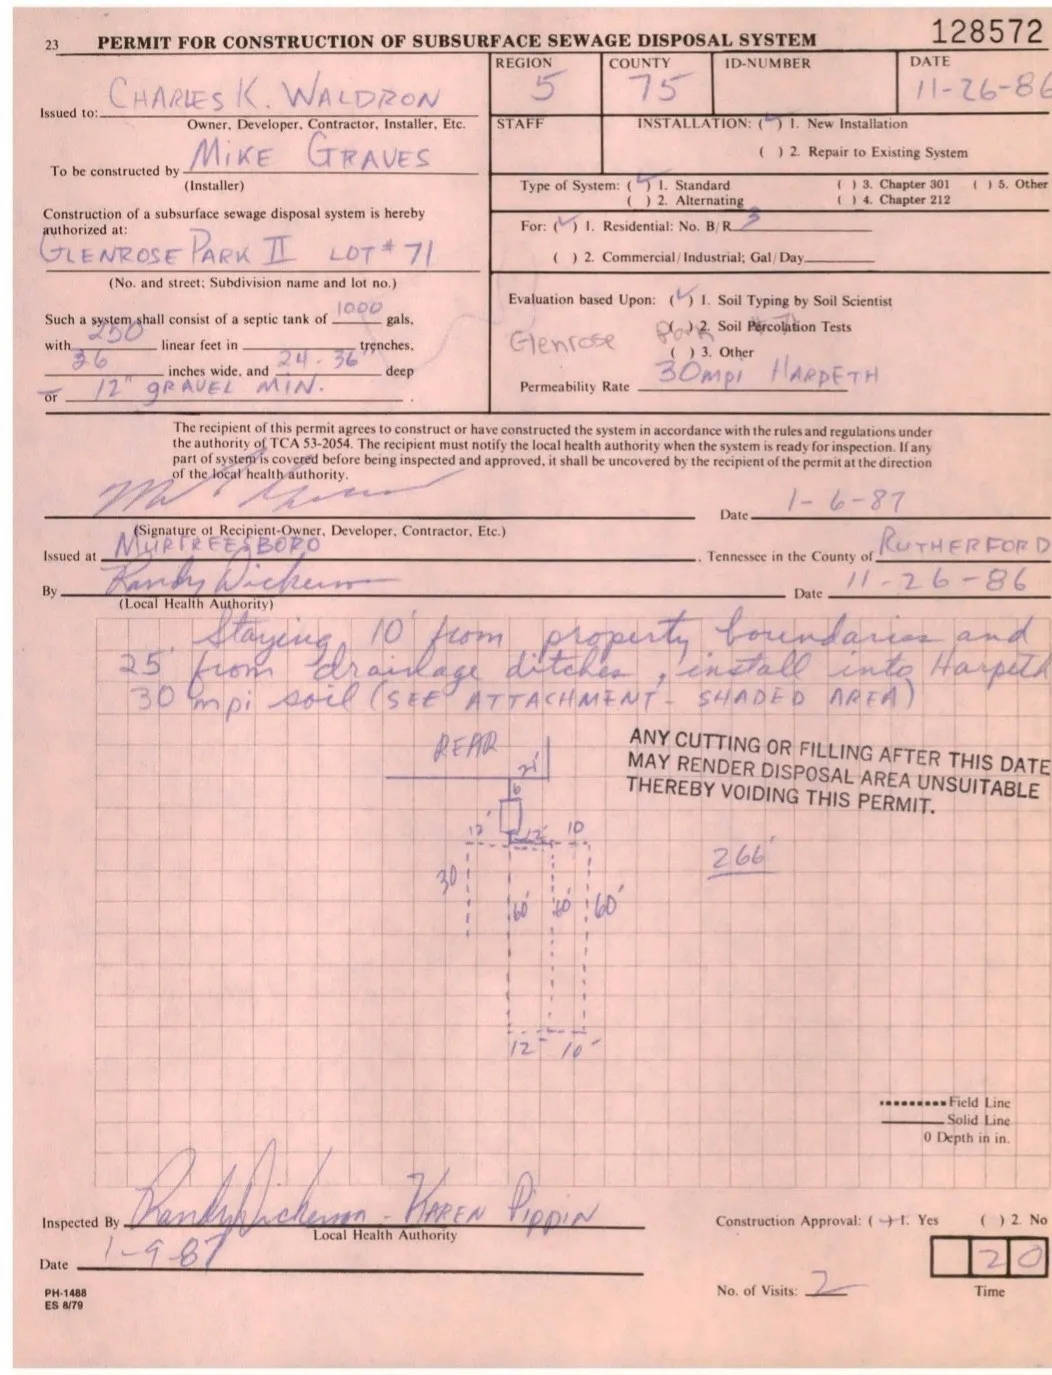 23 PERMIT FOR CONSTRUCTION OF SUBSURFACE SEWAGE DISPOSAL SYSTEM 128572
Issued to: CHARLES K. WALDRON
Owner, Developer, Contractor, Installer, Etc.
To be constructed by MIKE GRAVES
(Installer)
Construction of a subsurface sewage disposal system is hereby
authorized at:
GLENROSE PARK II LOT # 71
(No. and street; Subdivision name and lot no.)
Such a system shall consist of a septic tank of 1000 gals,
with 250 linear feet in trenches,
36 inches wide, and 24-36" deep
or 12" GRAVEL MIN.
REGION 5 COUNTY 75 ID-NUMBER DATE 11-26-86
STAFF INSTALLATION: (✓) 1. New Installation
( ) 2. Repair to Existing System
Type of System: (✓) 1. Standard ( ) 3. Chapter 301 ( ) 5. Other
( ) 2. Alternating ( ) 4. Chapter 212
For: (✓) 1. Residential: No. B/R 3
( ) 2. Commercial/Industrial; Gal/Day
Evaluation based Upon: (✓) 1. Soil Typing by Soil Scientist
( ) 2. Soil Percolation Tests
Glenrose Park
( ) 3. Other
Permeability Rate 30mpi HARPETH
The recipient of this permit agrees to construct or have constructed the system in accordance with the rules and regulations under
the authority of TCA 53-2054. The recipient must notify the local health authority when the system is ready for inspection. If any
part of system is covered before being inspected and approved, it shall be uncovered by the recipient of the permit at the direction
of the local health authority.
Date 1-6-87
(Signature of Recipient-Owner, Developer, Contractor, Etc.)
Issued at MURFREESBORO , Tennessee in the County of RUTHERFORD
By Randy Dickerson Date 11-26-86
(Local Health Authority)
Staying 10' from property boundaries and
25' from drainage ditches, install into Harpeth
30 mpi soil (SEE ATTACHMENT - SHADED AREA)
ANY CUTTING OR FILLING AFTER THIS DATE
MAY RENDER DISPOSAL AREA UNSUITABLE
THEREBY VOIDING THIS PERMIT.
REAR
21'
6
12' 12' 10
266'
30
60' 60' 60'
12' 10'
Field Line
Solid Line
0 Depth in in.
Inspected By Randy Dickerson - KAREN PIPPIN
Local Health Authority
Construction Approval: (+) 1. Yes ( ) 2. No
Date 1-9-87
No. of Visits: 2
20
Time
PH-1488
ES 8/79